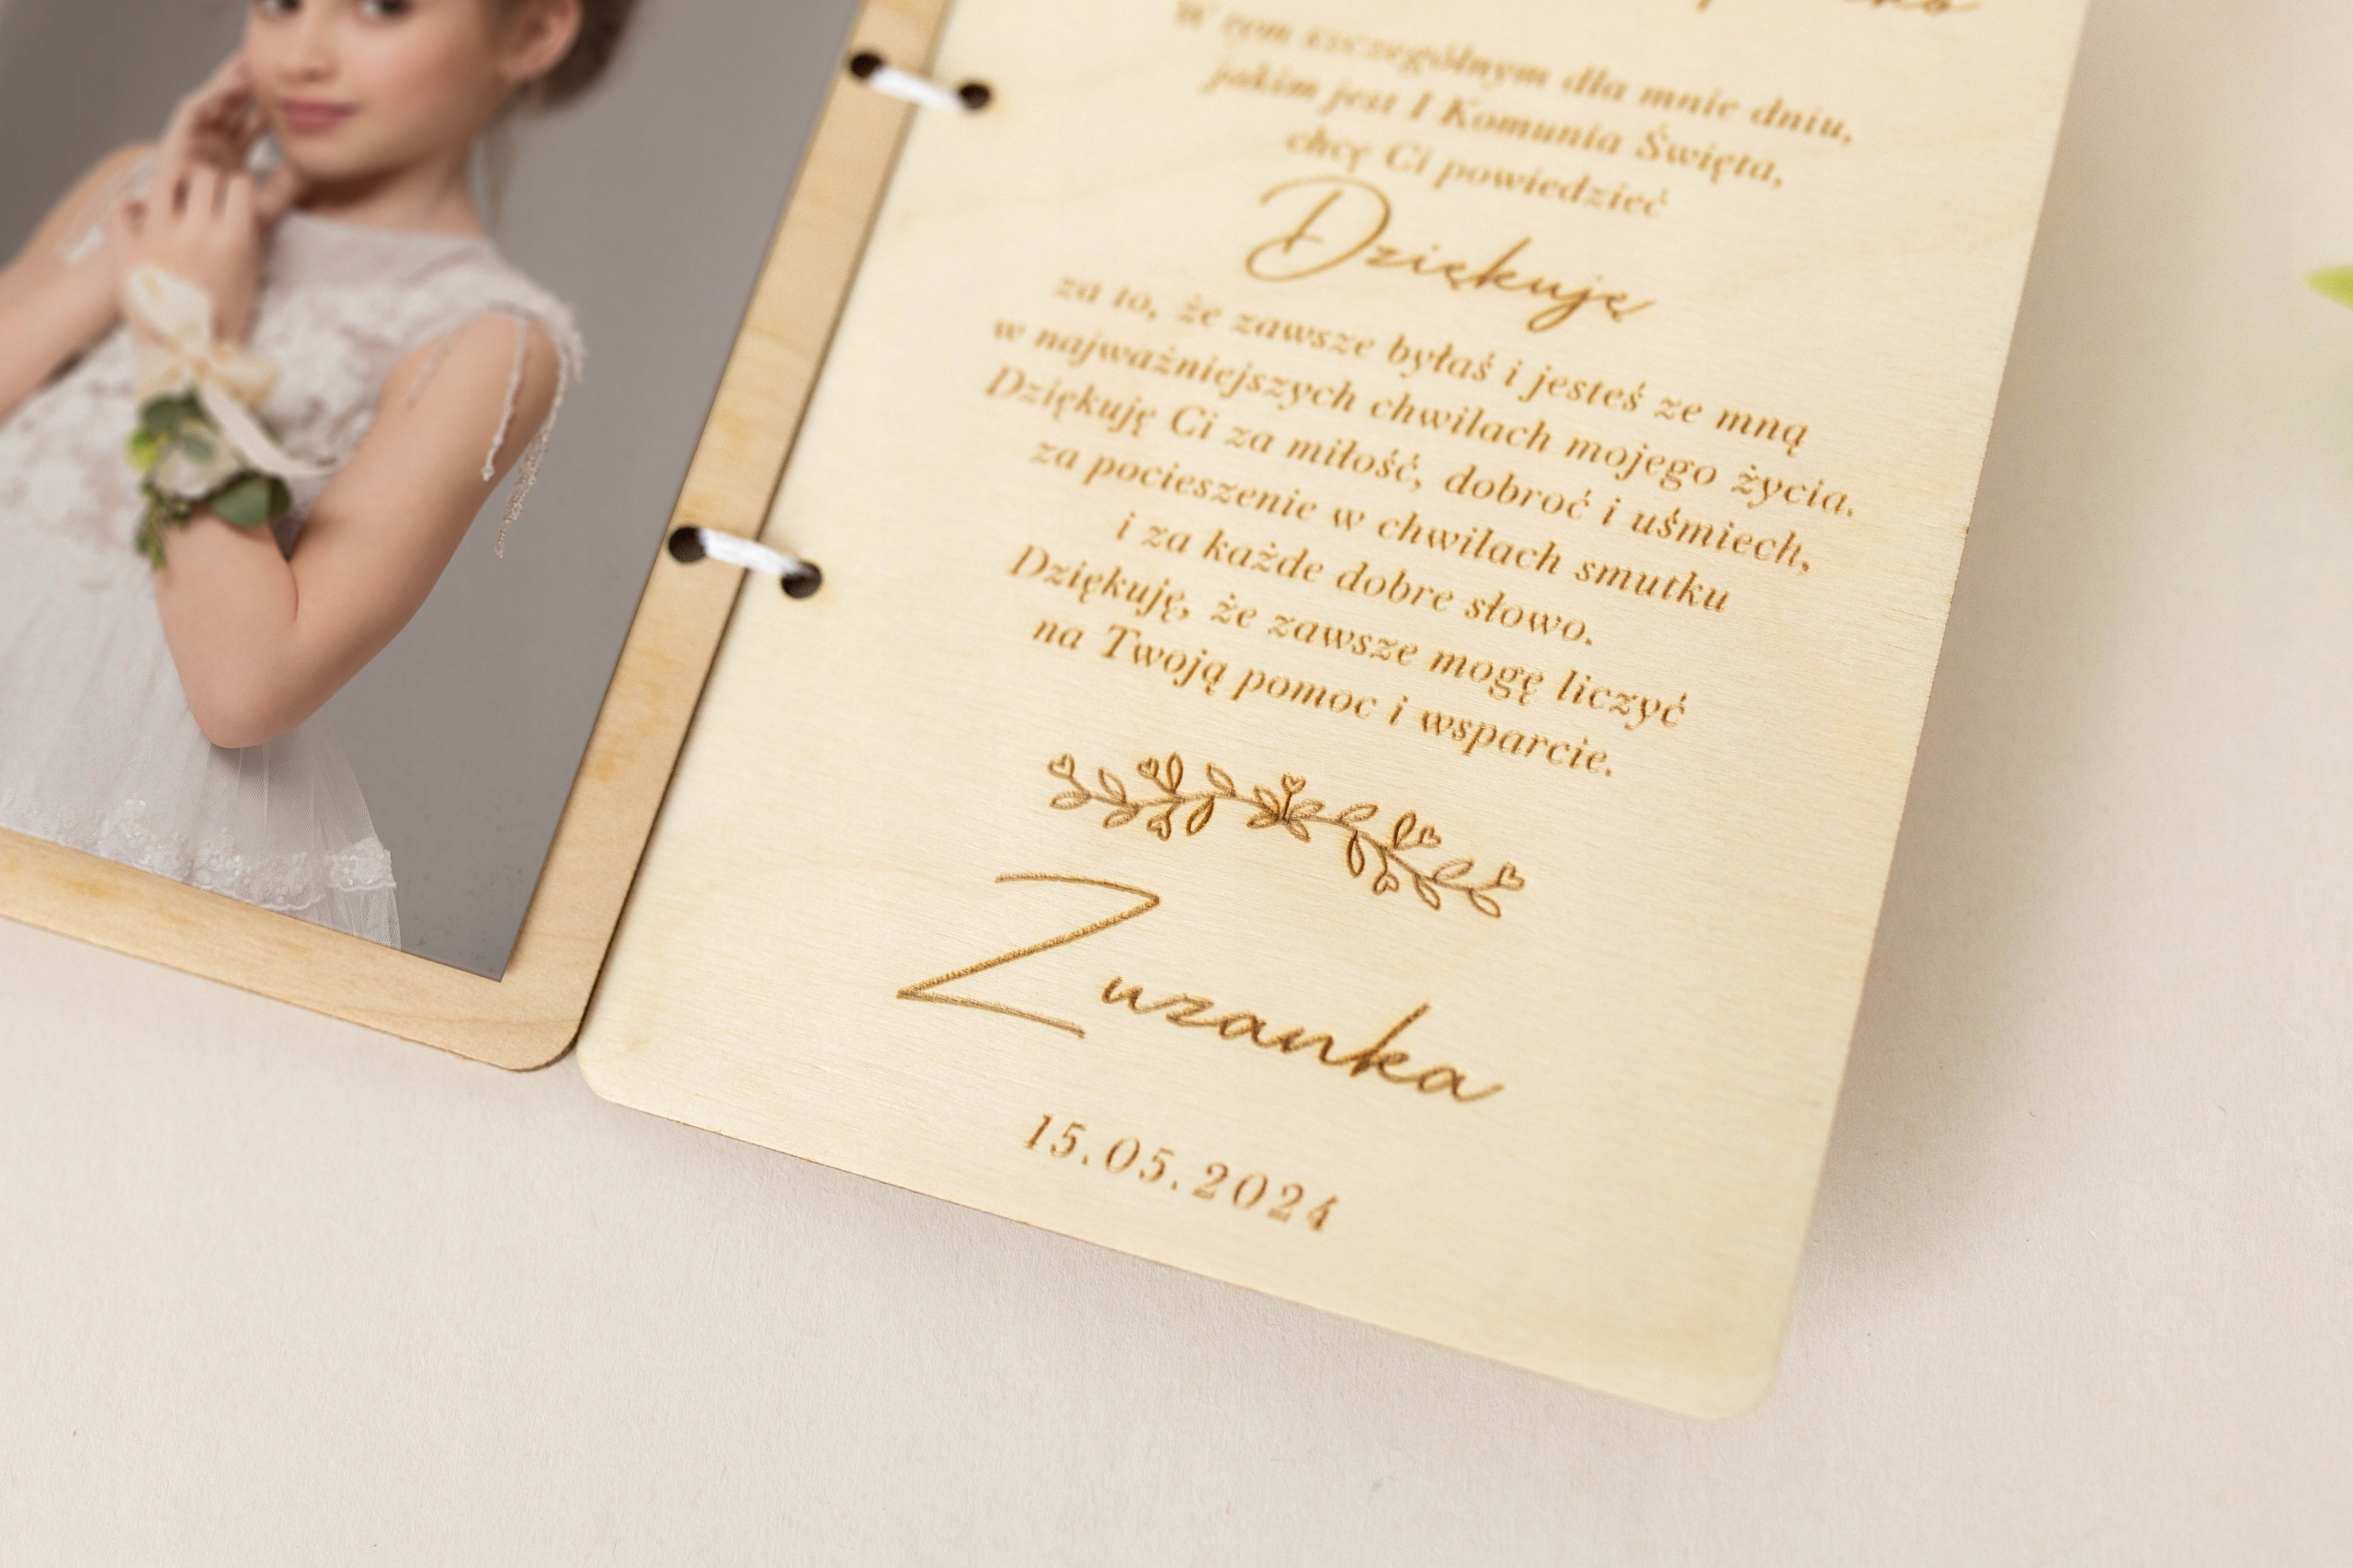 W tym szczególnym dla mnie dniu,
jakim jest I Komunia Święta,
chcę Ci powiedzieć
Dziękuję
za to, że zawsze byłaś i jesteś ze mną
w najważniejszych chwilach mojego życia.
Dziękuję Ci za miłość, dobroć i uśmiech,
za pocieszenie w chwilach smutku
i za każde dobre słowo.
Dziękuję, że zawsze mogę liczyć
na Twoją pomoc i wsparcie.
Zuzanka
15.05.2024